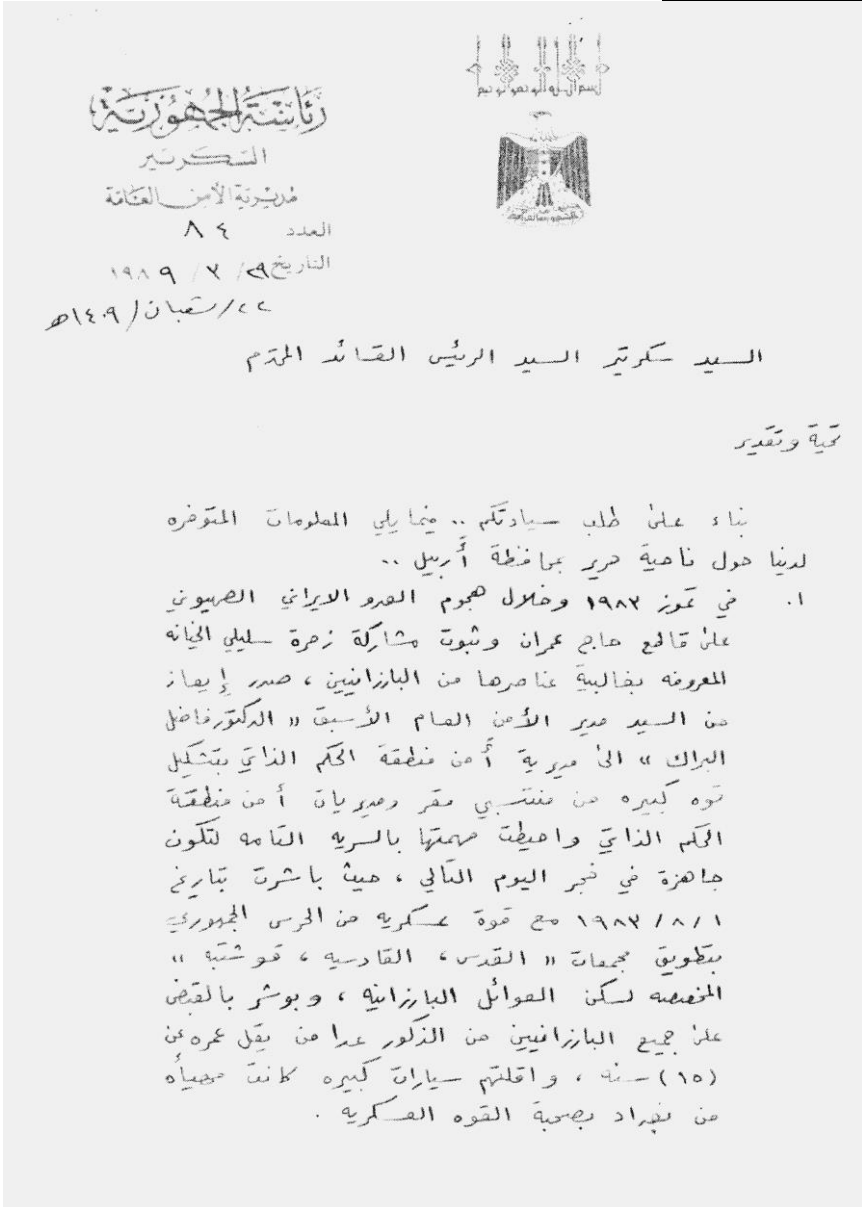 بسم الله الرحمن الرحيم
رئاسة الجمهورية
السكرتير
مديرية الأمن العامة
العدد ٨٤
التاريخ ٢٩/ ٣ / ١٩٨٩
٢٢/شعبان/١٤٠٩هـ
السيد سكرتير السيد الرئيس القائد المحترم
تحية وتقدير
بناء على طلب سيادتكم .. فيما يلي المعلومات المتوفره
لدينا حول ناحية حرير بمحافظة أربيل ..
١. في تموز ١٩٨٣ وخلال هجوم العدو الايراني الصهيوني
على قاطع حاج عمران وثبوت مشاركة زمرة سليلي الخيانه
المعروفه بغالبية عناصرها من البارزانيين ، صدر إيعاز
من السيد مدير الأمن العام الأسبق « الدكتور فاضل
البراك » الى مديرية أمن منطقة الحكم الذاتي بتشكيل
قوه كبيره من منتسبي مقر ومديريات أمن منطقة
الحكم الذاتي واحيطت مهمتها بالسريه التامه لتكون
جاهزة في فجر اليوم التالي ، حيث باشرت بتاريخ
١٩٨٣/٨/١ مع قوة عسكريه من الحرس الجمهوري
بتطويق مجمعات « القدس ، القادسيه ، قوشتبه »
المخصصه لسكن العوائل البارزانيه ، وبوشر بالقبض
على جميع البارزانيين من الذكور عدا من يقل عمره عن
(١٥) سنه ، واقلتهم سيارات كبيره كانت مهيأه
من بغداد بصحبة القوه العسكريه .